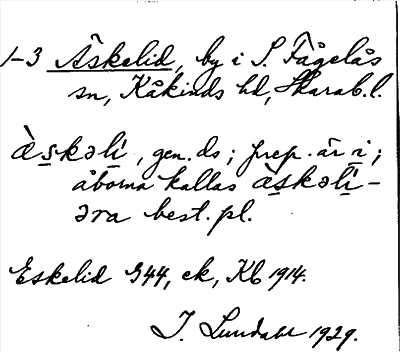 1-3 Äskelid, by i S. Fågelås
sn, Kåkinds hd, Skarab.l.
àskəlí, gen. ds; prep. är i;
åborna kallas àskəlí-
əra best. pl.
Eskelid 344, ek, Kb 1914.
I. Lundahl 1929.